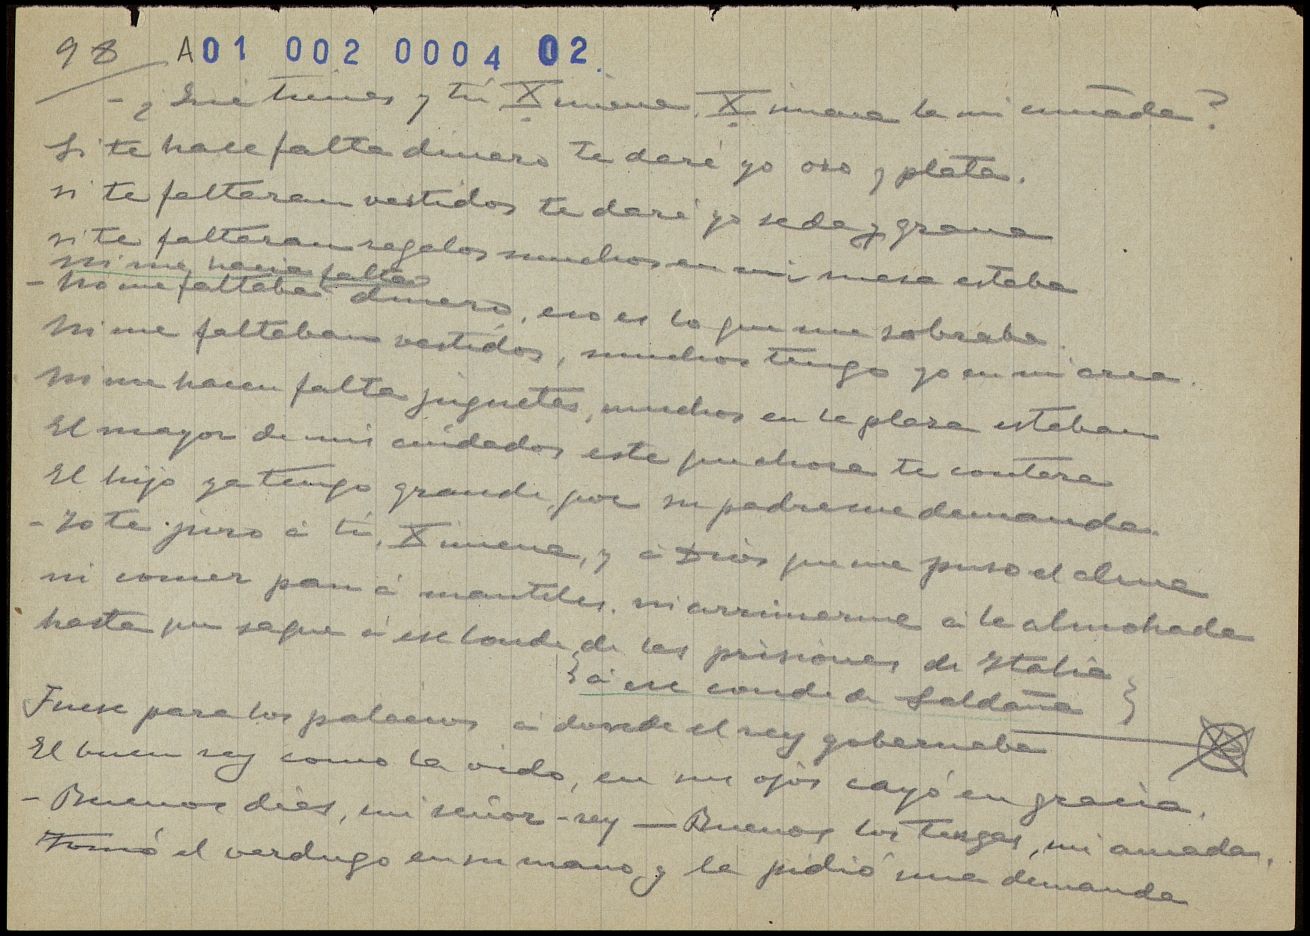 98 A01 002 0004 02.
- ¿Que tienes y tú Ximena, Ximena la mi cuñada?
Si te hace falta dinero te daré yo oro y plata.
si te faltaran vestidos te daré yo seda y grana
si te faltaran regalos muchos en mi mesa estaba
Ni me hacia falta
- No me faltaba dinero, eso es lo que me sobraba.
Ni me faltaban vestidos, muchos tengo yo en mi arca.
Ni me hacen falta juguetes, muchos en la plaza estaban
El mayor de mis cuidados este que ahora te contara
El hijo ya tengo grande, por su padre me demanda.
- Yo te juro á tí, Ximena, y á Dios que me puso el alma
ni comer pan á manteles, ni arrimarme á la almohada
hasta que saque á ese conde de las prisiones de Italia
{ á ese conde de Saldaña }
Fuese para los palacios á donde el rey gobernaba
El buen rey como la vido, en sus ojos cayó en gracia.
- Buenos dias, mi señor rey — Buenos los tengas, mi amada.
Tomó el verdugo en su mano y le pidió una demanda